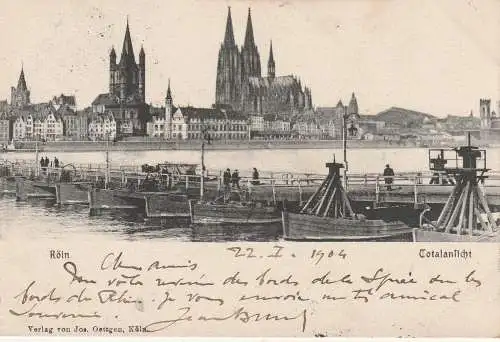 Köln.
Totalansicht
22_I_1904
Chers Amis
votre voisin des bords de la Sprée du les
bords du Rhin. je vous envoie un très amical
souvenir.
Jean
Verlag von Jos. Oettgen, Köln.